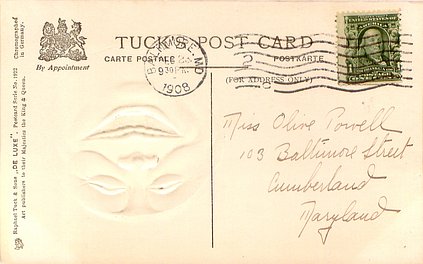 TUCK'S POST CARD
CARTE POSTALE
POSTKARTE
(FOR ADDRESS ONLY)
By Appointment
Chromographed
in Germany.
Raphael Tuck & Sons „DE LUXE" Postcard Serie No. 1922
Art publishers to their Majesties the King & Queen.
MD
1908
Miss Olive Powell
103 Baltimore Street
Cumberland
Maryland